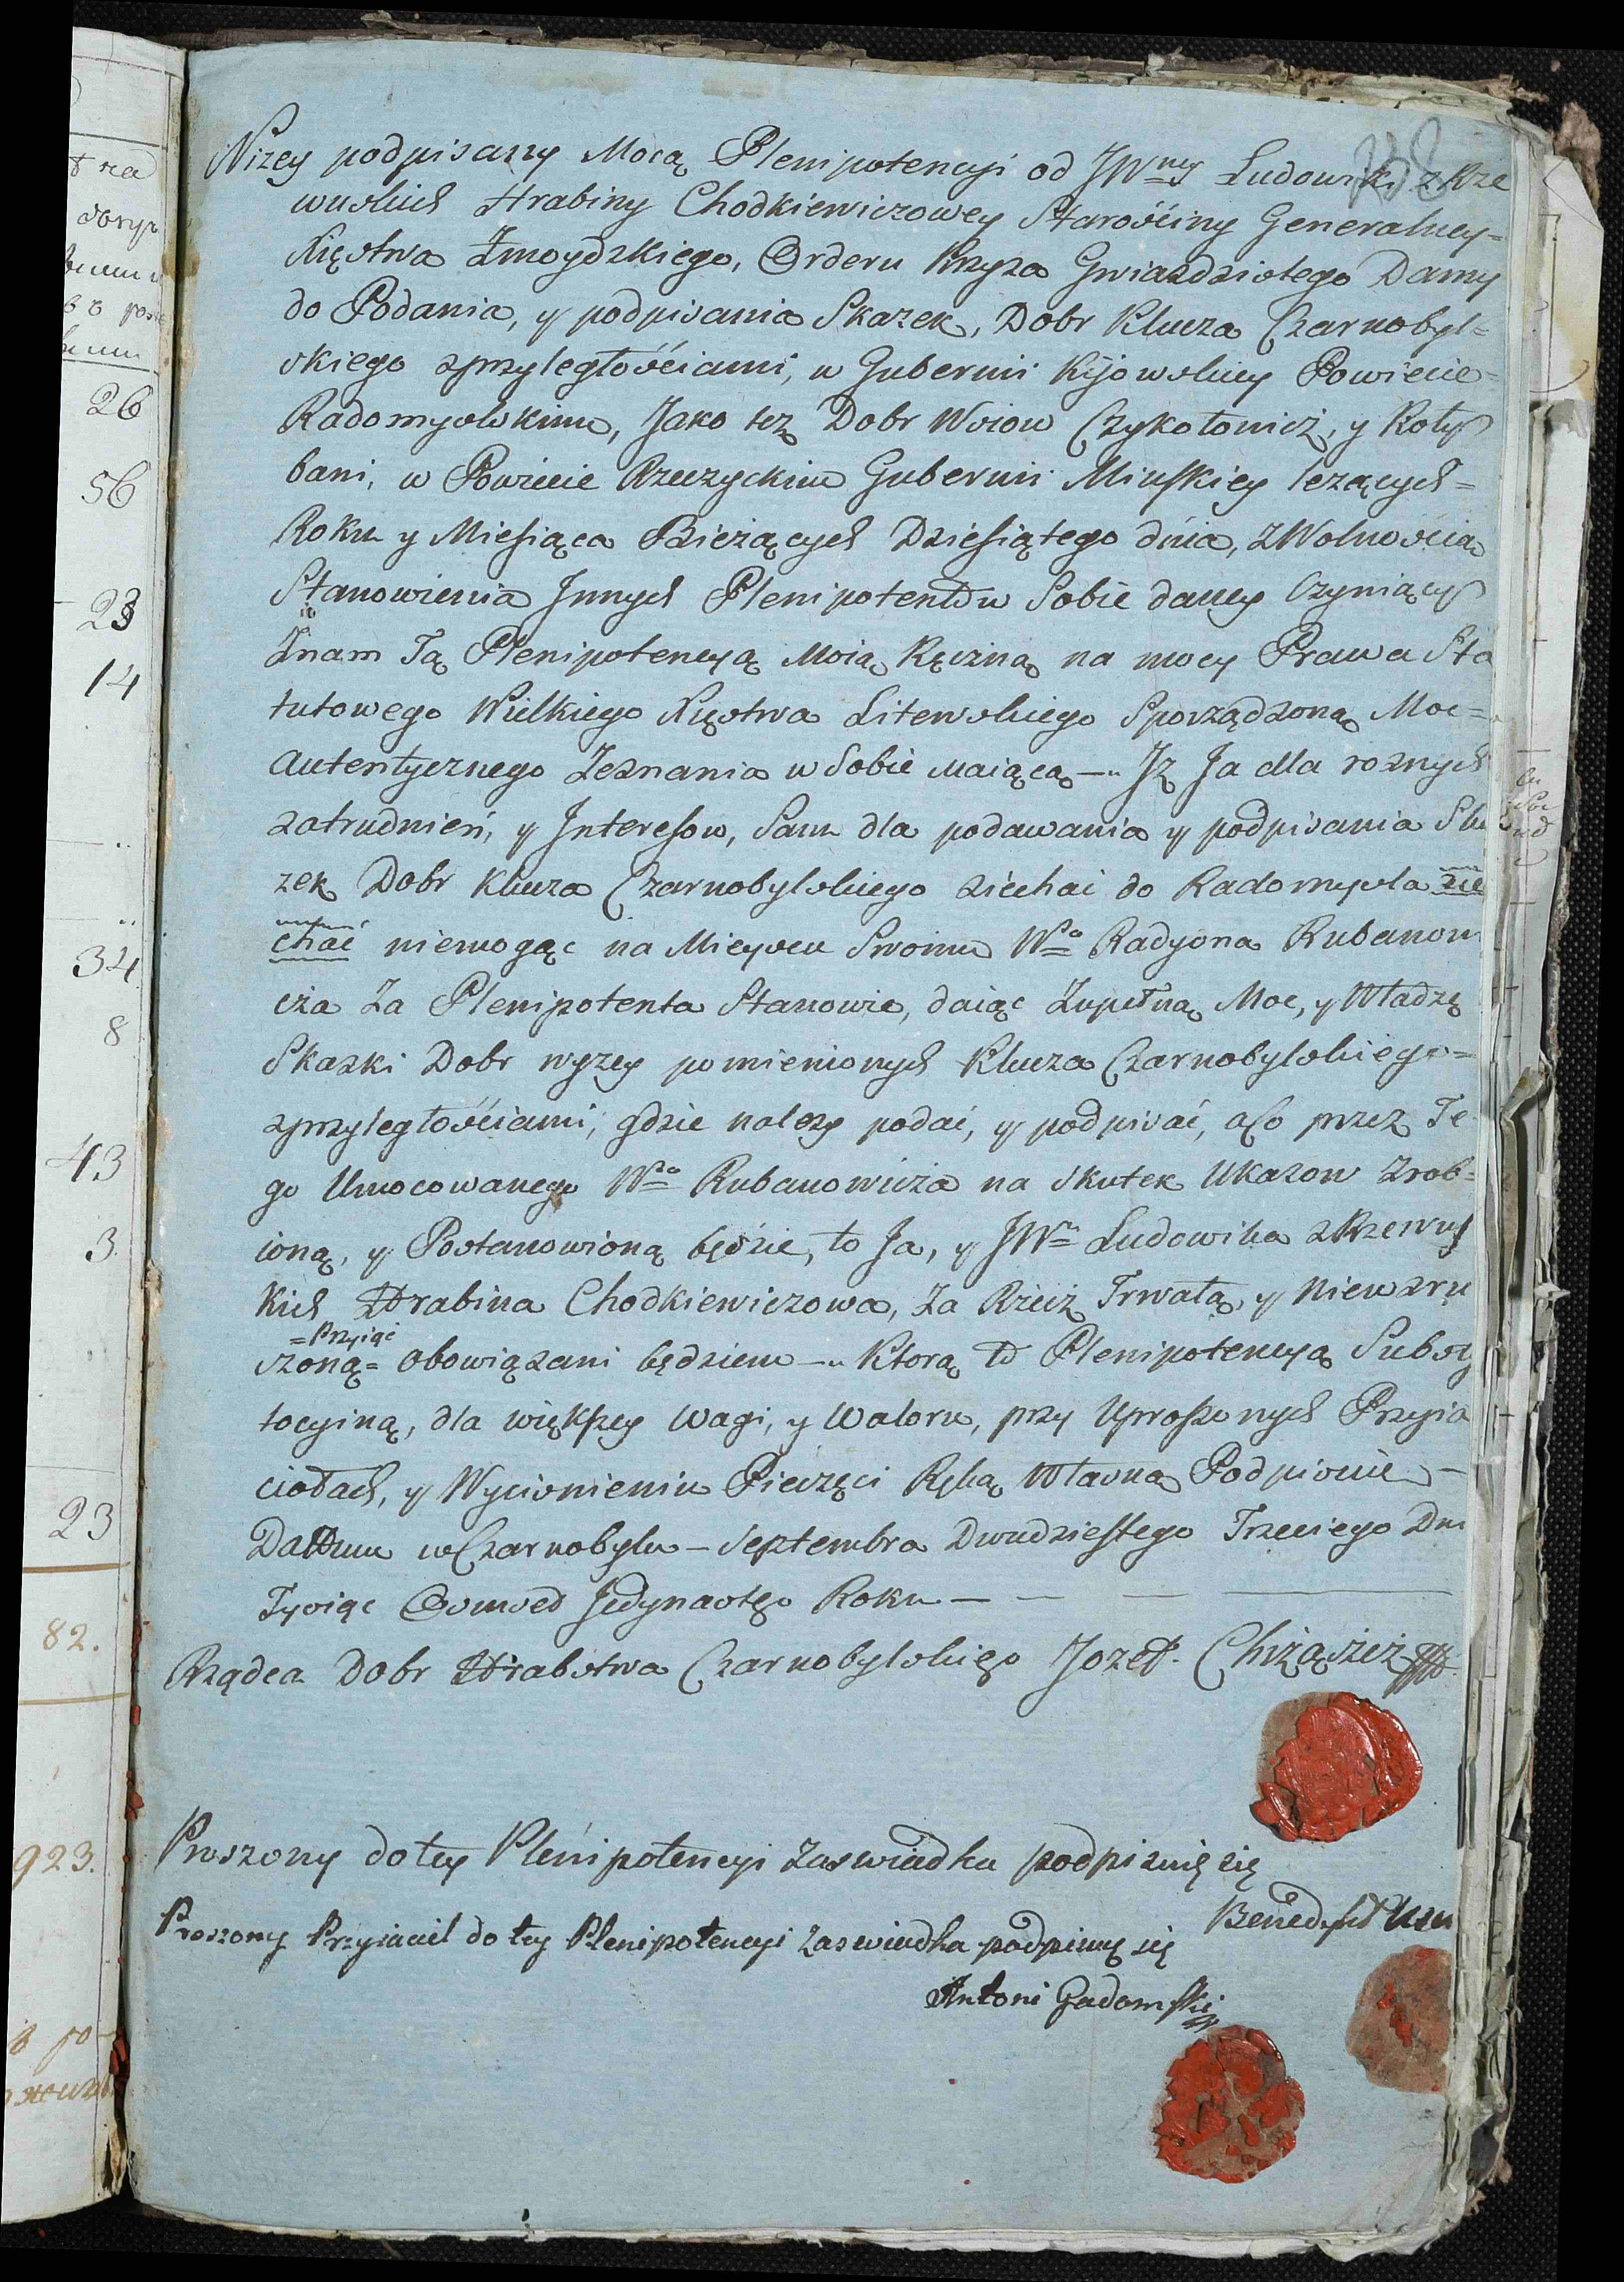 Niżey podpisany Mocą Plenipotencyi od JWney Ludowiki z Rze
wuskich Hrabiny Chodkiewiczowey Starościny Generalney=
Xięstwa Żmoydzkiego, Orderu Krzyża Gwiazdzistego Damy
do Podania, y podpisania Skazek, Dobr Klucza Czarnobyl=
skiego zprzyległościami, w Gubernii Kijowskiey Powiecie=
Radomyslskim, Jako też Dobr Wsiow Czykołowicz, y Koły
bani, w Powiecie Rzeczyckim Gubernii Minskiey leżących=
Roku y Miesiąca Bieżących Dziesiątego dnia, z Wolnością
Stanowienia Innych Plenipotentow Sobie daney Czyniący
Znam Tą Plenipotencyą Moią Ręczną na mocy Prawa Sta
tutowego Wielkiego Xięstwa Litewskiego Sporządzoną Moc=
Autentycznego Zeznania w Sobie maiącą —„ Jż Ja dla roznych
zatrudnień, y Interesow, Sam dla podawania y podpisania Ska
zek Dobr Klucza Czarnobylskiego ziechać do Radomysla zie
chać niemogąc na Mieyscu Swoim Wo Radyona Rubanow
icza Za Plenipotenta Stanowie, daiąc Zupełną Moc, y Władzę
Skazki Dobr wyzey pomienionych Klucza Czarnobylskiego=
zprzyległościami, gdzie należy podać, y podpisać, a co przez Te
go Umocowanego Wo Rubanowicza na Skutek Ukazow Zrob=
ioną, y Postanowioną będzie, to Ja, y JWa Ludowika z Rzewus
kich Hrabina Chodkiewiczowa, Za Rzecz Trwałą, y Niewzru
=Przyiąć
szoną= obowiązani będziem —„ Ktorą to Plenipotencyą Substy
tocyiną, dla większey Wagi, y Waloru, przy Uproszonych Przyia
ciołach, y Wycisnieniu Pieczęci Ręką Własną Podpisuie —
Dattum w Czarnobylu — Septembra Dwudziestego Trzeciego Dn
Tysiąc Osmset Jedynastego Roku —
Rządca Dobr Hrabstwa Czarnobylskiego Jozef Chrząszcz
Proszony do tey Plenipotencyi Zaswiadka podpisuię się
Benedykt
Proszony Przyiaciel do tey Plenipotencyi zaswiadka podpisuię się
Antoni Gadomski
26
56
23
14
34
8
43
3
23
82.
923.